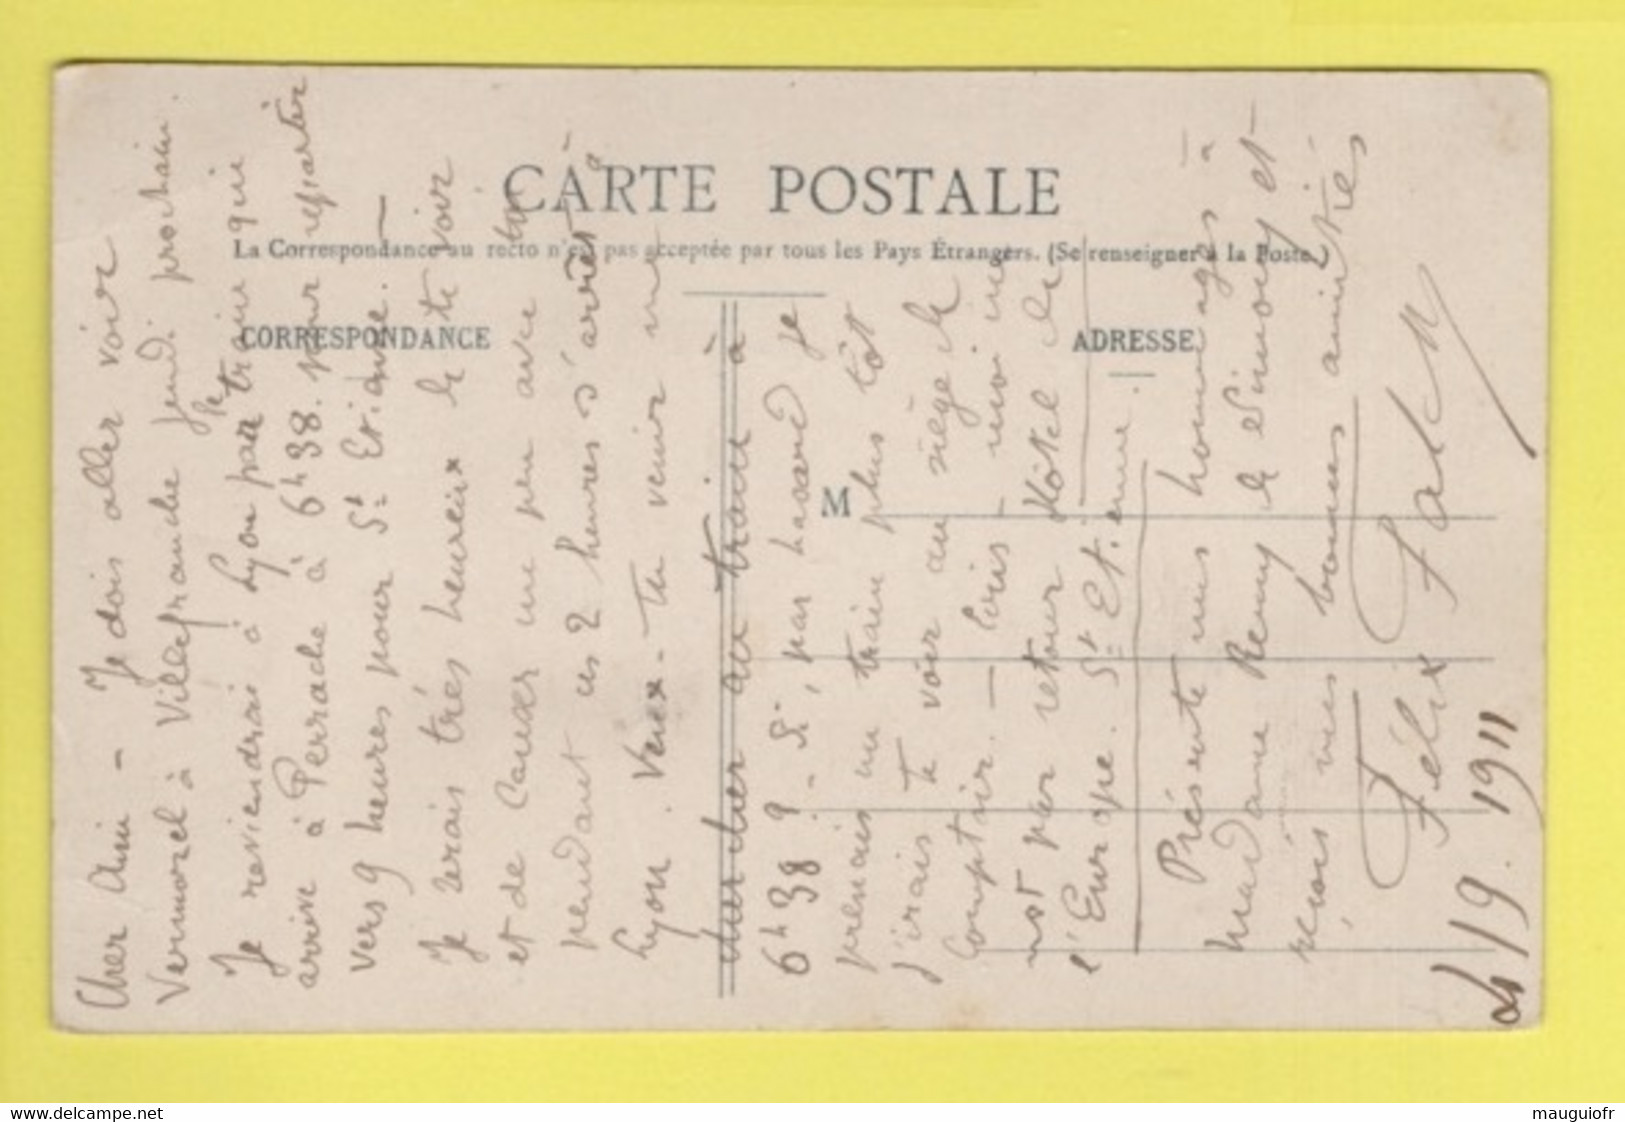 CARTE POSTALE
La Correspondance au recto n'est pas acceptée par tous les Pays Étrangers. (Se renseigner à la Poste)
CORRESPONDANCE
ADRESSE
M
Cher Ami - Je dois aller voir
Vermorel à Villefranche jeudi prochain.
Je reviendrai à Lyon par le train qui
arrive à Perrache à 6h38. pour repartir
vers 9 heures pour St Etienne. -
Je serais très heureux de te voir
et de causer un peu avec toi
pendant ces 2 heures d'arrêt à
Lyon. Veux-tu venir me
chercher au train à
6h38 ? - Si, par hasard je
prenais un train plus tôt
j'irais te voir au siège du
Comptoir. - Ecris-moi un
mot par retour Hôtel de
l'Europe. St Etienne.
Présente mes hommages à
Madame Remy de Simony et
reçois mes bonnes amitiés
Félix Falck
4/9. 1911
www.delcampe.net
mauguiofr